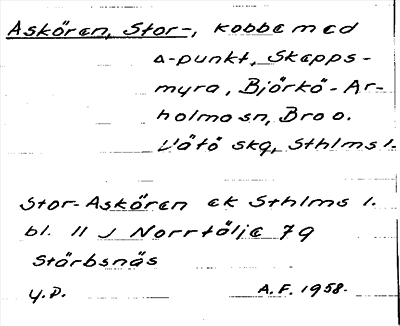 Askören, Stor-, kobbe med
Δ-punkt, Skepps-
myra, Björkö-Ar-
holma sn, Bro o.
Vätö skg, Sthlms l.
Stor-Askören ek Sthlms l.
bl. 11 J Norrtälje 79
Stärbsnäs
y.D. A.F. 1958.